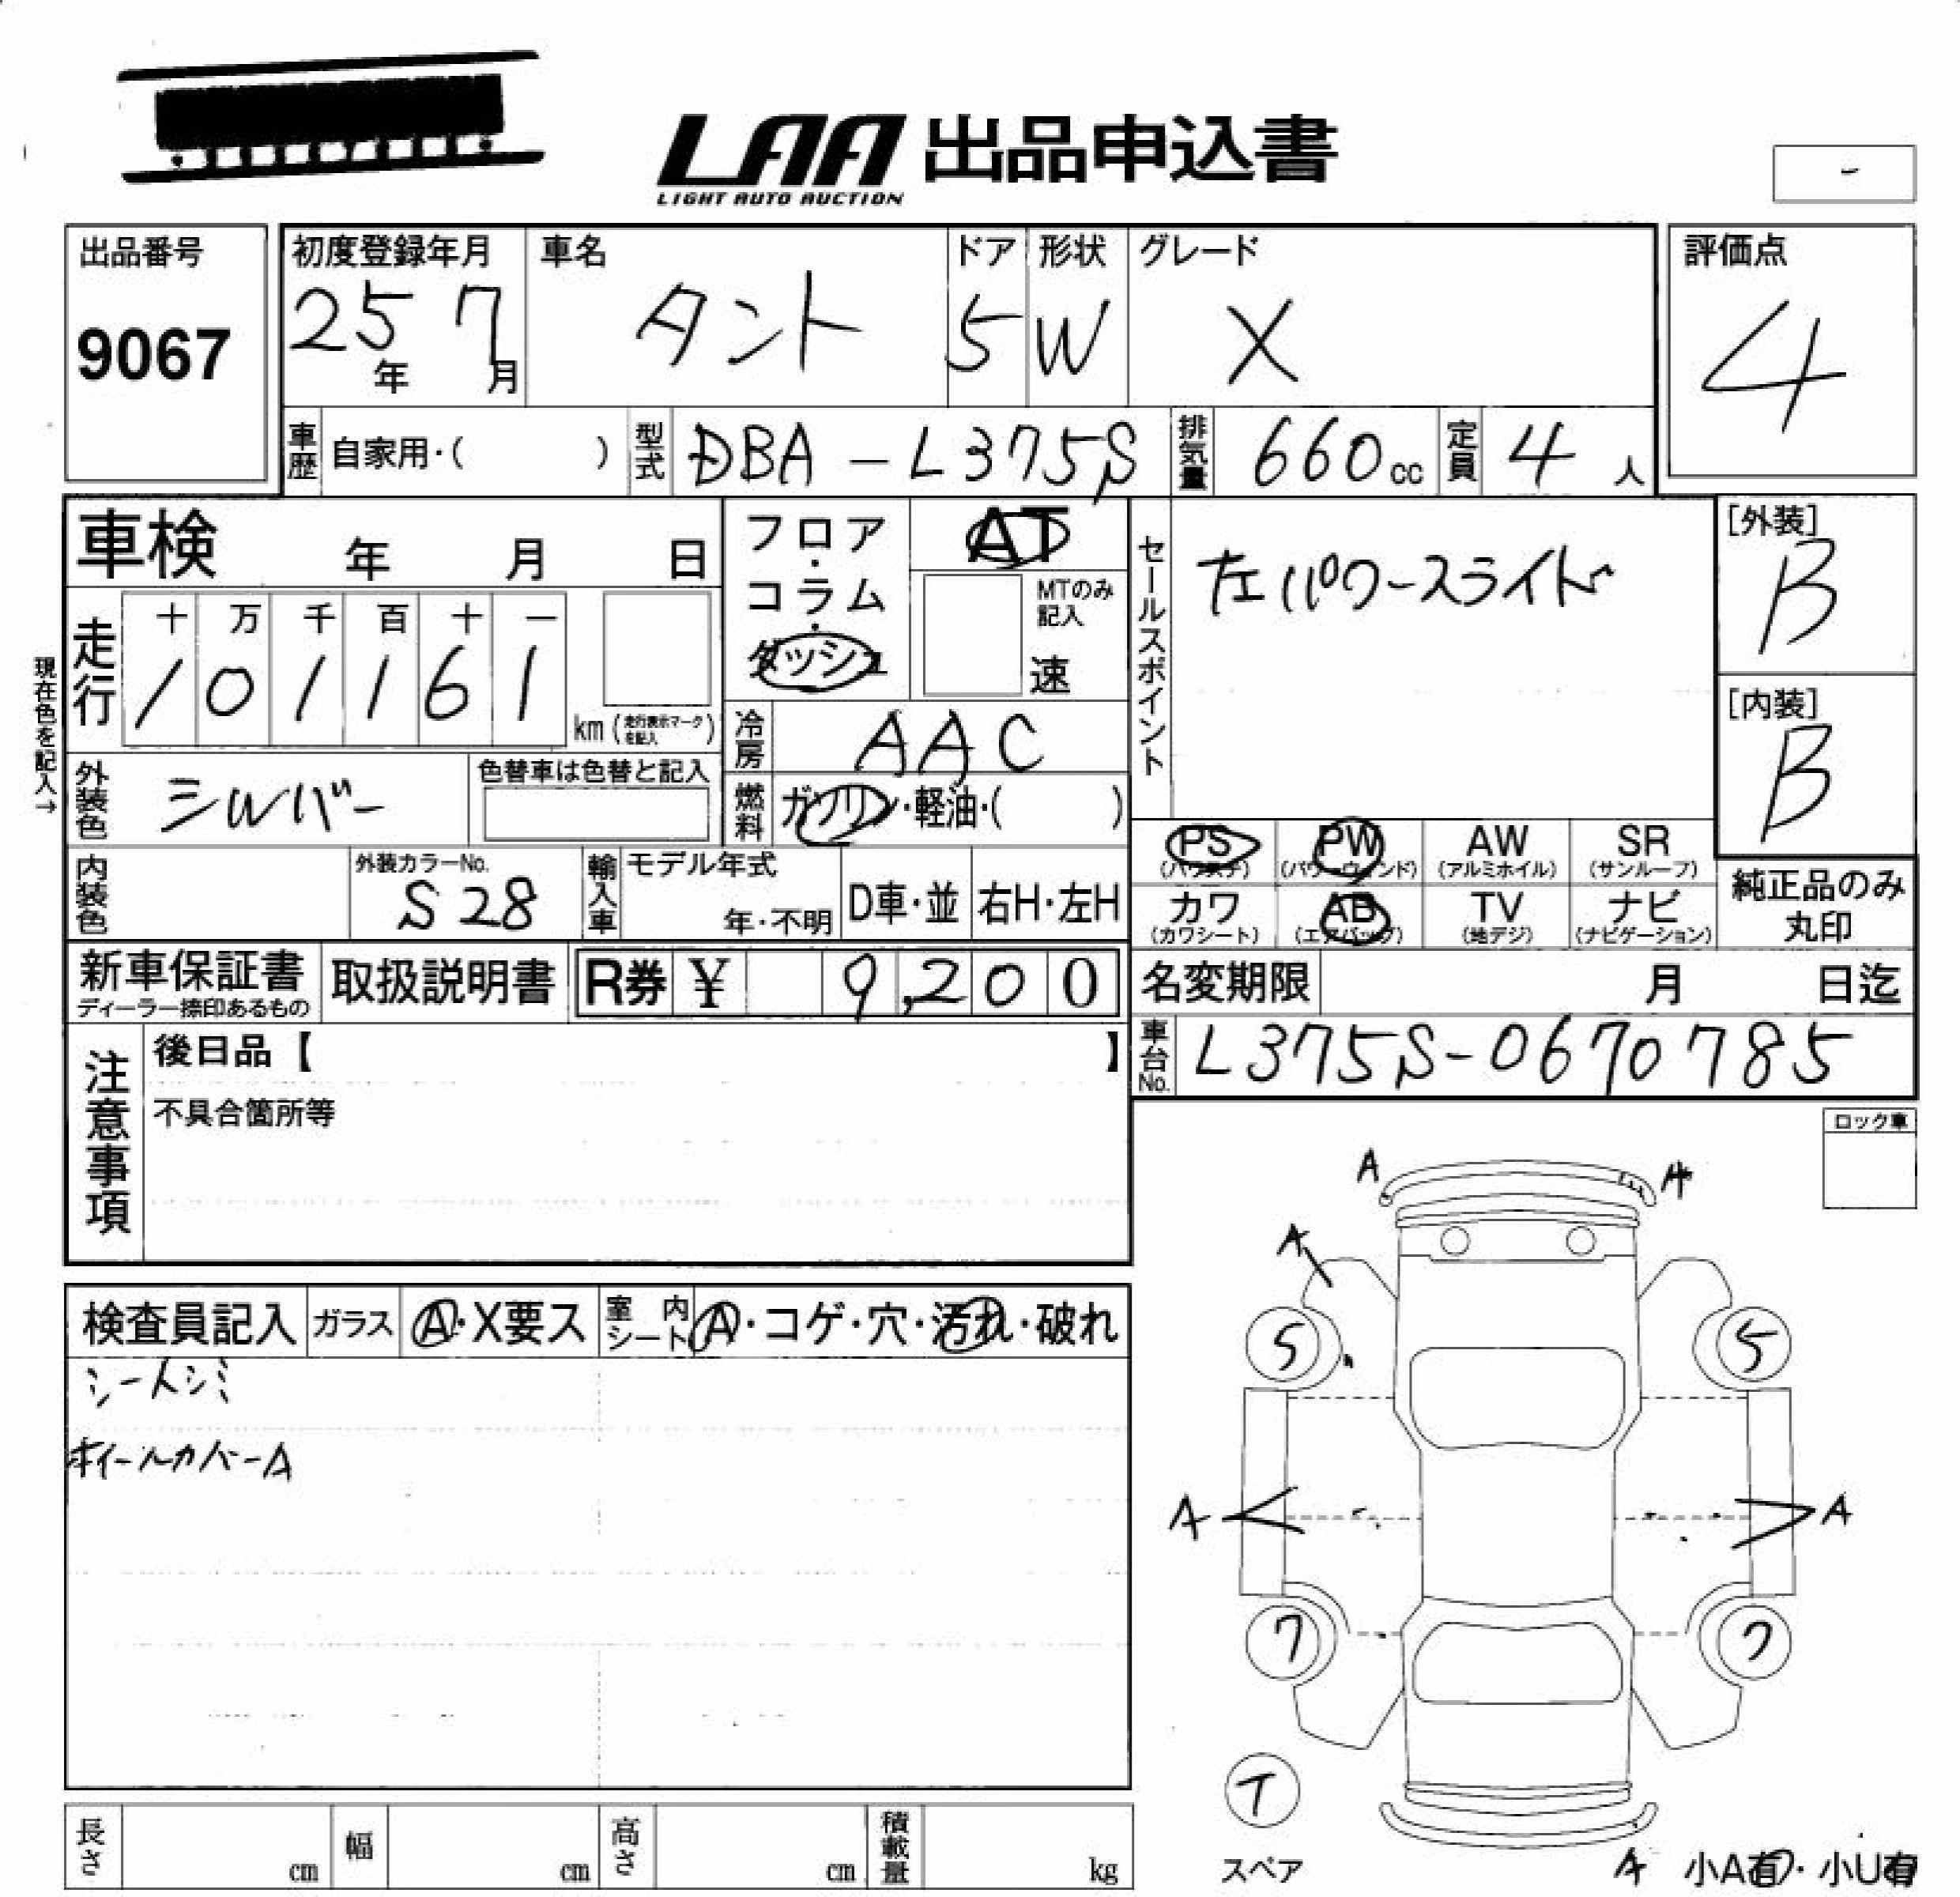 LAA 出品申込書
LIGHT AUTO AUCTION
-
出品番号
9067
初度登録年月
25年 7月
車名
タント
ドア
5
形状
W
グレード
X
評価点
4
車歴 自家用・( )
型式 DBA-L375S
排気量 660cc
定員 4人
車検 年 月 日
フロア・コラム・ダッシュ
AT
MTのみ記入
速
セールスポイント
左パワースライド
[外装]
B
[内装]
B
現在色を記入→
走行
十 万 千 百 十 一
1 0 1 1 6 1
km (走行表示マークを記入)
冷房 AAC
外装色 シルバー
色替車は色替と記入
燃料 ガソリン・軽油・( )
内装色
外装カラーNo.
S28
輸入車
モデル年式
年・不明
D車・並
右H・左H
PS (パワステ)
PW (パワーウィンド)
AW (アルミホイル)
SR (サンルーフ)
カワ (カワシート)
AB (エアバッグ)
TV (地デジ)
ナビ (ナビゲーション)
純正品のみ丸印
新車保証書
ディーラー捺印あるもの
取扱説明書
R券 ¥ 9,200
名変期限 月 日迄
車台No. L375S-0670785
注意事項
後日品【 】
不具合箇所等
ロック車
検査員記入
ガラス A・X要ス
室内シート A・コゲ・穴・汚れ・破れ
シートシミ
ホイールカバーA
A
A
A
5
5
A
A
7
7
T
スペア
A
小A有・小U有
長さ cm
幅 cm
高さ cm
積載量 kg